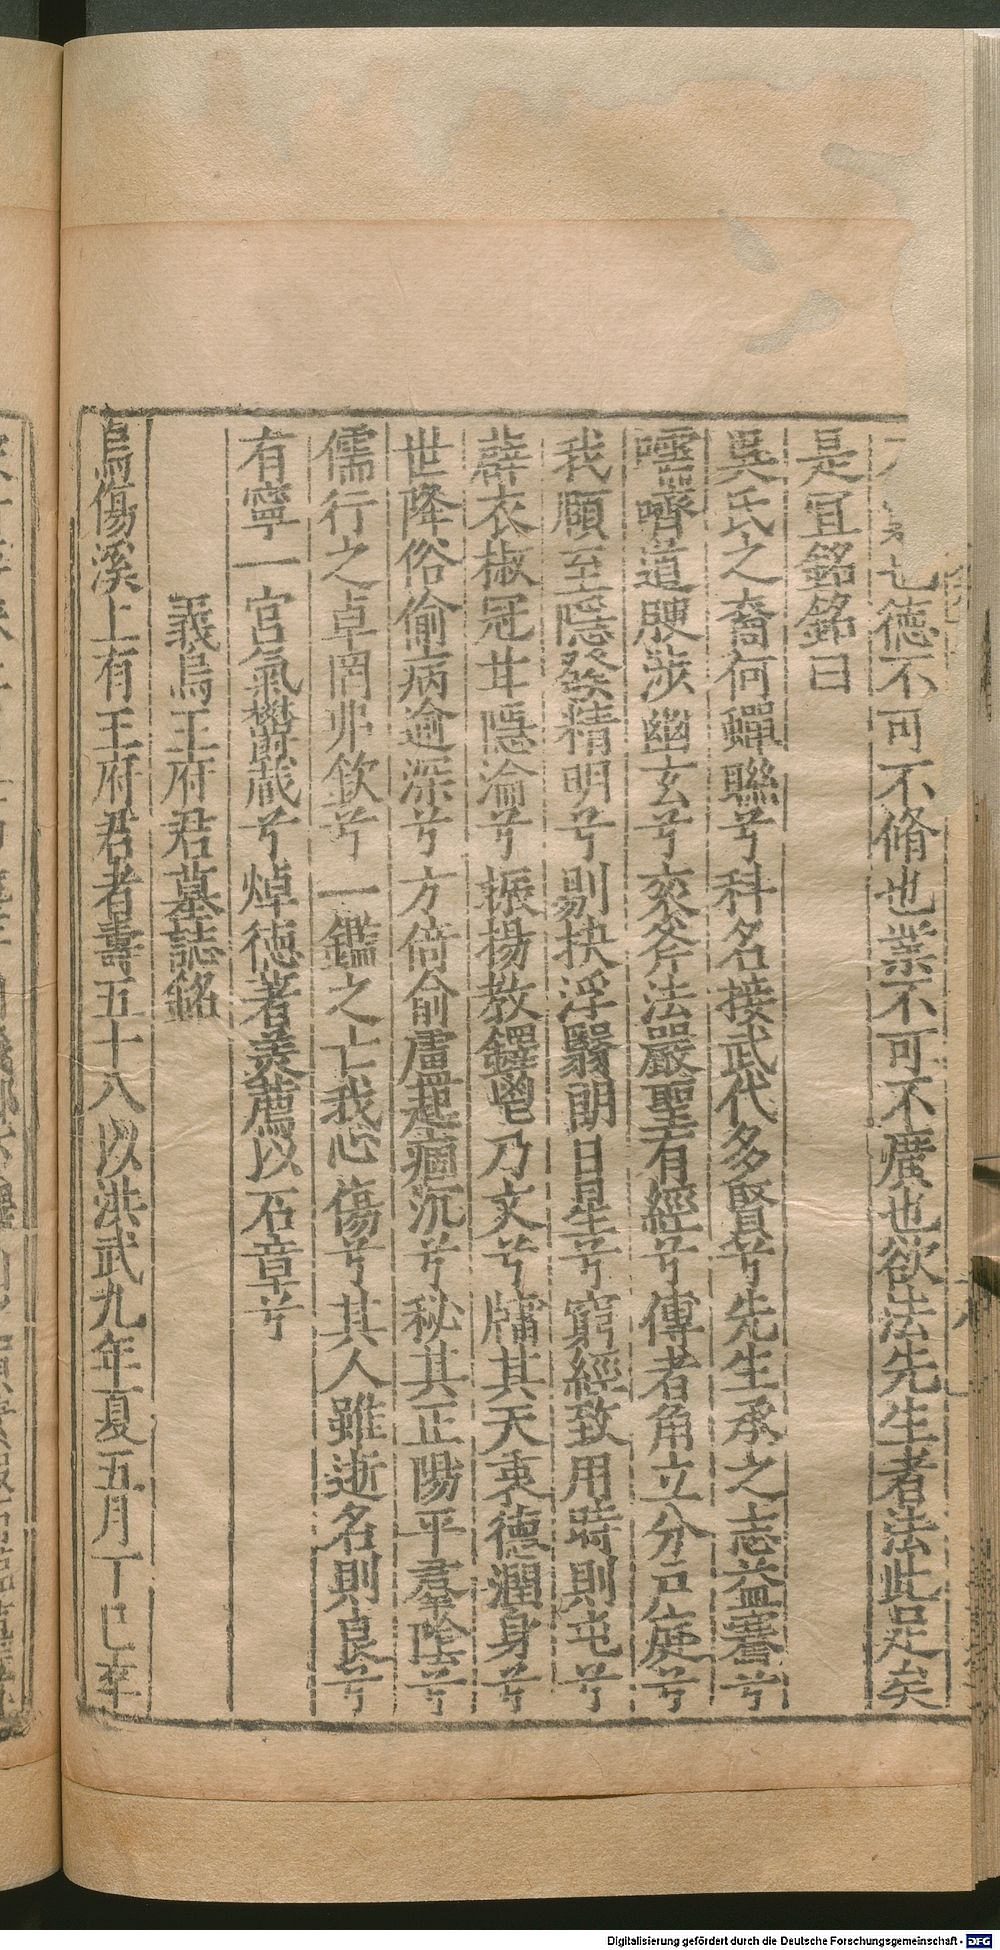 德不可不脩也業不可不廣也欲法先生者法此足矣
是宜銘銘曰
吳氏之裔何蟬聯兮科名接武代多賢兮先生承之志益騫兮
嚅嚌道腴涉幽玄兮奕奕斧法嚴聖有經兮傳者角立分戶庭兮
我願至隱發精明兮剔抉浮翳朗日星兮窮經致用時則屯兮
薜衣椒冠甘隱淪兮振揚教鐸鬯乃文兮牖其天衷德潤身兮
世降俗偷病逾深兮方倚俞盧起痼沉兮秘其正陽平羣陰兮
儒行之卓罔弗欽兮一鑑之亡我心傷兮其人雖逝名則良兮
有寧一宮氣欝藏兮焯德著美薦以石章兮
義烏王府君墓誌銘
烏傷溪上有王府君者壽五十八以洪武九年夏五月丁巳卒
Digitalisierung gefördert durch die Deutsche Forschungsgemeinschaft - DFG